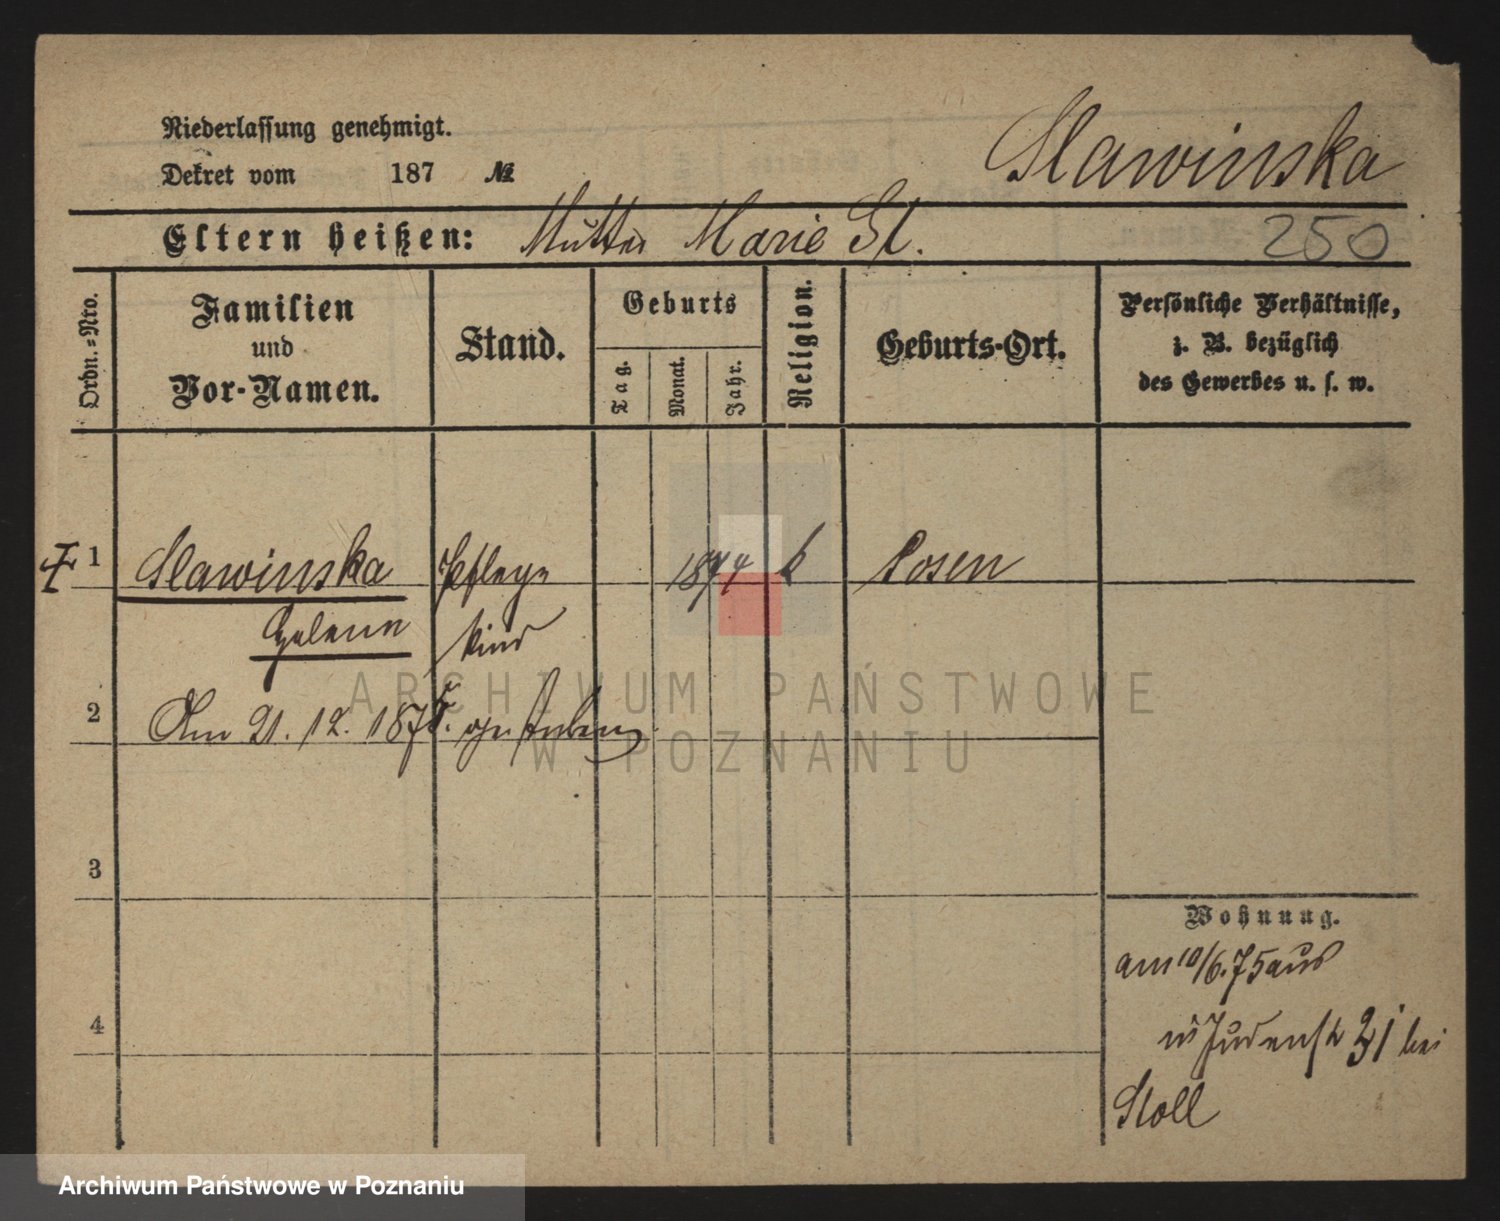 Niederlassung genehmigt.
Dekret vom 187 №
Slawinska
Eltern heißen: Mutter Marie Sl.
250
Ordn.=Nro.
Familien
und
Vor-Namen.
Stand.
Geburts
Tag.
Monat.
Jahr.
Religion.
Geburts-Ort.
Persönliche Verhältnisse,
z. B. bezüglich
des Gewerbes u. s. w.
1 Slawinska Pflege 1874 k Posen
Helene kind
2 Am 21. 12. 1875. gestorben
3
4
Wohnung.
am 10/6.75 aus
Judenstr 31 bei
Stoll
ARCHIWUM PAŃSTWOWE
W POZNANIU
Archiwum Państwowe w Poznaniu